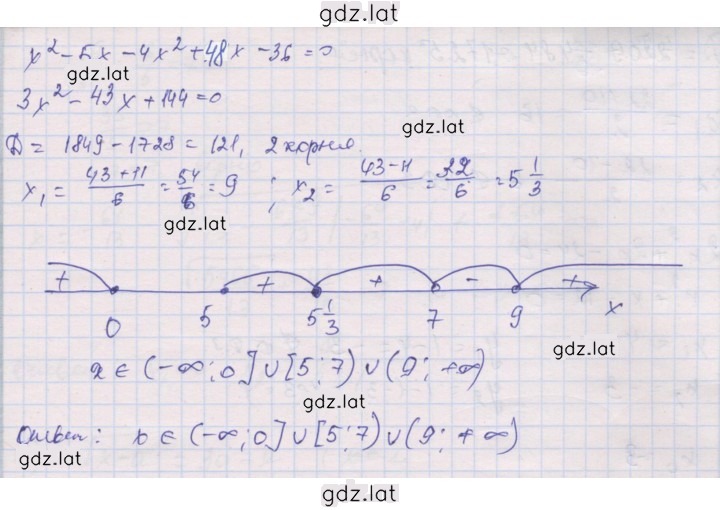 gdz.lat
x² - 5x - 4x² + 48x - 36 = 0
gdz.lat
3x² - 43x + 144 = 0
gdz.lat
D = 1849 - 1728 = 121, 2 корня.
x₁ = (43+11)/6 = 54/6 = 9 ; x₂ = (43-11)/6 = 32/6 = 5 1/3
gdz.lat
+ + + - +
0 5 5 1/3 7 9 x
gdz.lat
x ∈ (-∞; 0] ∪ [5; 7) ∪ (9; +∞)
gdz.lat
Ответ: x ∈ (-∞; 0] ∪ [5; 7) ∪ (9; +∞)
gdz.lat
gdz.lat